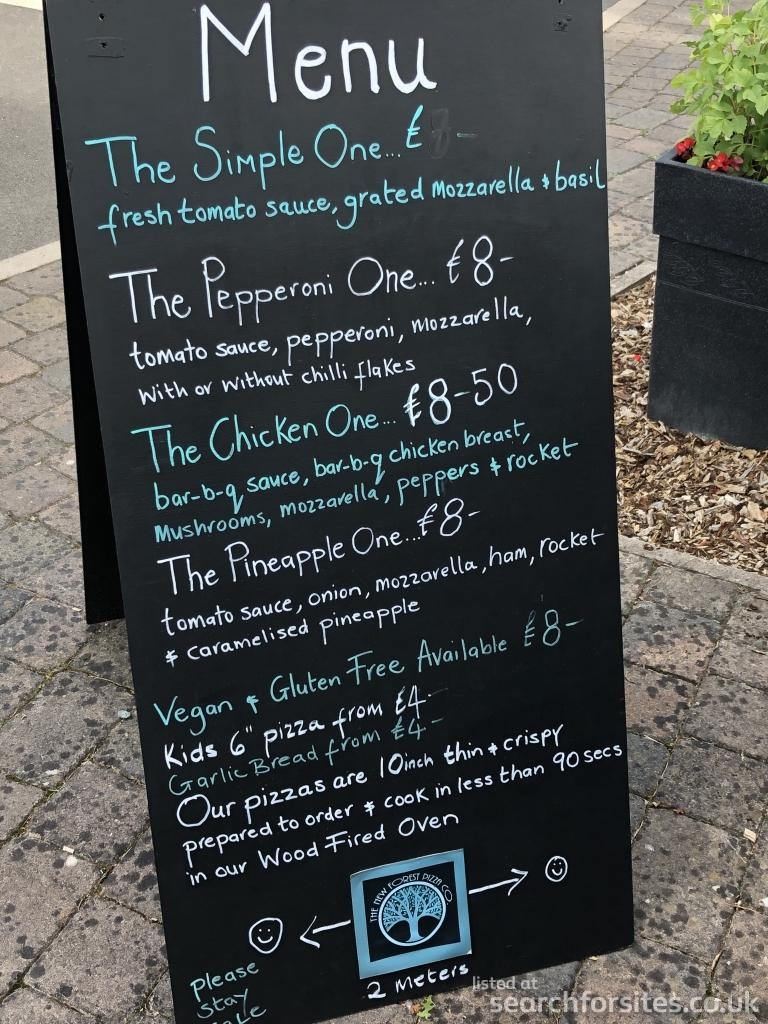 Menu
The Simple One... £ -
fresh tomato sauce, grated Mozzarella & basil
The Pepperoni One... £8-
tomato sauce, pepperoni, mozzarella,
with or without chilli flakes
The Chicken One... £8-50
bar-b-q sauce, bar-b-q chicken breast,
Mushrooms, mozzarella, peppers & rocket
The Pineapple One... £8-
tomato sauce, onion, mozzarella, ham, rocket
& caramelised pineapple
Vegan & Gluten Free Available £8-
Kids 6" pizza from £4-
Garlic Bread from £4-
Our pizzas are 10inch thin & crispy
prepared to order & cook in less than 90 secs
in our Wood Fired Oven
THE NEW FOREST PIZZA CO
2 meters
please
stay
listed at
searchforsites.co.uk